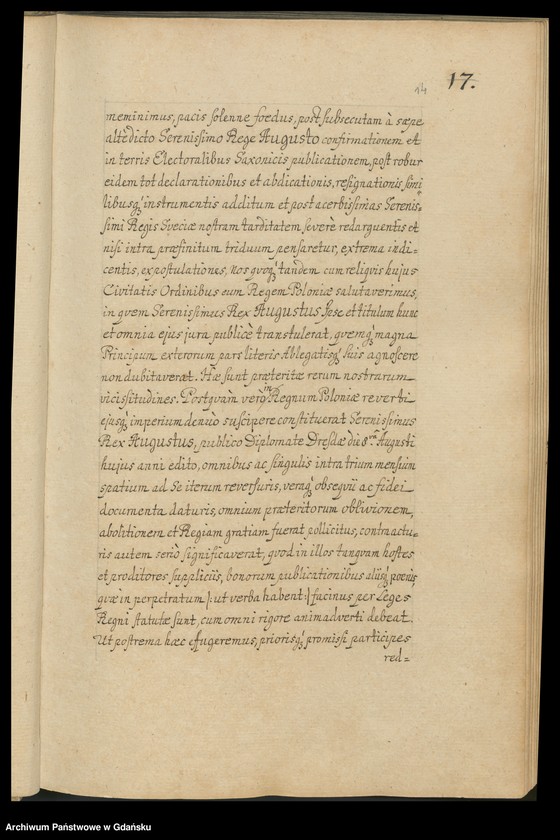 14 17.
meminimus, pacis solenne foedus, post subsecutam à sæpe
altè dicto Serenissimo Rege Augusto confirmationem et
in terris Electoralibus Saxonicis publicationem, post robur
eidem tot declarationibus et abdicationis, resignationis, simi
libusq; instrumentis additum et post acerbissimas Serenis=
simi Regis Sveciæ nostram tarditatem severè redarguentis et
nisi intra præfinitum triduum pensaretur, extrema indi=
centis, expostulationes, nos qvoq; tandem cum reliqvis hujus
Civitatis Ordinibus eum Regem Poloniæ salutaverimus,
in qvem Serenissimus Rex Augustus Ipse et titulum hunc
et omnia ejus jura publicè transtulerat, qvemq; magna
Principum exterorum pars literis Ablegatisq; suis agnoscere
non dubitaverat. Hæ sunt præteritæ rerum nostrarum
vicissitudines. Postqvam verò in Regnum Poloniæ reverti
ejusq; imperium denuò suscipere constituerat Serenissimus
Rex Augustus, publico Diplomate Dresdæ die 8.va Augusti
hujus anni edito, omnibus ac singulis intra trium mensium
spatium ad Se iterum reversuris, veraq; obseqvii ac fidei
documenta daturis, omnium præteritorum oblivionem,
abolitionem et Regiam gratiam fuerat pollicitus, contractu=
ris autem seriò significaverat, qvod in illos tanqvam hostes
et proditores suppliciis, bonorum publicationibus aliisq; poenis
qvæ in perpetratum |: ut verba habent :| facinus per Leges
Regni statutæ sunt, cum omni rigore animadverti debeat.
Ut postrema hæc effugeremus, priorisq; promissi participes
red=
Archiwum Państwowe w Gdańsku